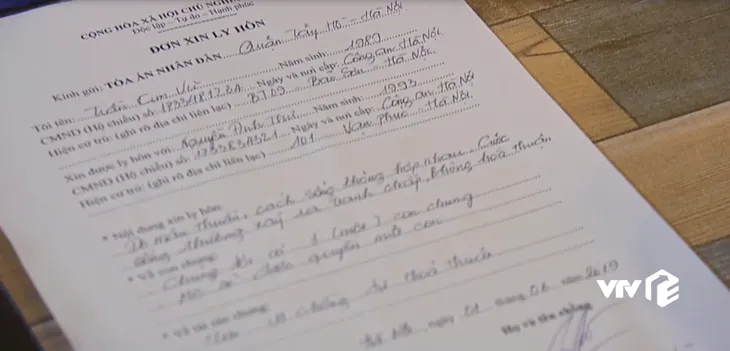 CỘNG HÒA XÃ HỘI CHỦ NGHĨA
Độc lập - Tự do - Hạnh phúc
ĐƠN XIN LY HÔN
Kính gửi: TÒA ÁN NHÂN DÂN Quận Tây Hồ - Hà Nội
Tôi tên: Trần Kim Vũ Năm sinh: 1989
CMND (Hộ chiếu) số: Ngày và nơi cấp: Công an Hà Nội.
Hiện cư trú: (ghi rõ địa chỉ liên lạc) BT09 Hà Nội.
Xin được ly hôn với: Nguyễn Đình Thư Năm sinh: 1993
CMND (Hộ chiếu) số: Ngày và nơi cấp: Công an Hà Nội
Hiện cư trú: (ghi rõ địa chỉ liên lạc) 101 Vạn Phúc Hà Nội.
* Nội dung xin ly hôn:
Do mâu thuẫn, cách sống không hợp nhau. Cuộc
sống thường xảy ra tranh chấp, không hoà thuận
* Về con chung:
Chúng tôi có 1 (một) con chung
quyền nuôi con
* Về tài sản chung:
Vợ chồng tự thoả thuận
Hà Nội ngày 01 tháng 04 năm 2019
Họ và tên chồng
VTV